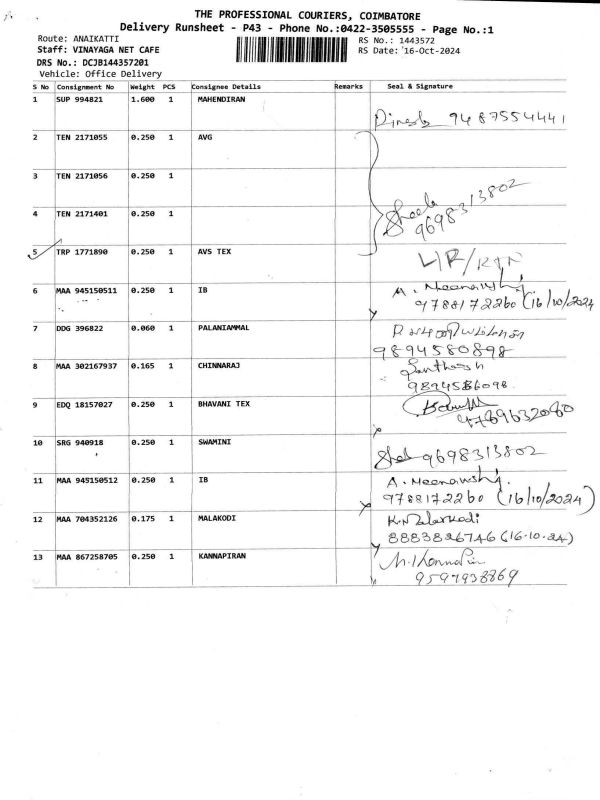 THE PROFESSIONAL COURIERS, COIMBATORE
Delivery Runsheet - P43 - Phone No.:0422-3505555 - Page No.:1
Route: ANAIKATTI
RS No.: 1443572
Staff: VINAYAGA NET CAFE
RS Date: 16-Oct-2024
DRS No.: DCJB144357201
Vehicle: Office Delivery
S No Consignment No Weight PCS Consignee Details Remarks Seal & Signature
1 SUP 994821 1.600 1 MAHENDIRAN
Dinesh 9487554441
2 TEN 2171055 0.250 1 AVG
3 TEN 2171056 0.250 1
4 TEN 2171401 0.250 1
Sheela
9698313802
5 TRP 1771890 0.250 1 AVS TEX
6 MAA 945150511 0.250 1 IB A. Meenakshi
9788172260 (16/10/2024
7 DDG 396822 0.060 1 PALANIAMMAL
9894580898
8 MAA 302167937 0.165 1 CHINNARAJ Santhosh
9894586098
9 EDQ 18157027 0.250 1 BHAVANI TEX
9789632080
10 SRG 940918 0.250 1 SWAMINI
9698313802
11 MAA 945150512 0.250 1 IB A. Meenakshi
9788172260 (16/10/2024)
12 MAA 704352126 0.175 1 MALAKODI K. Malarkodi
8883826746 (16-10-24)
13 MAA 867258705 0.250 1 KANNAPIRAN
9597938869